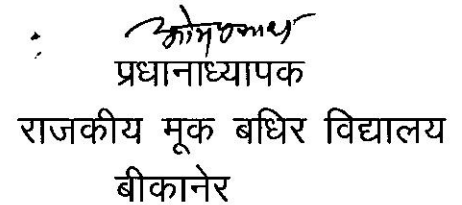 प्रधानाध्यापक
राजकीय मूक बधिर विद्यालय
बीकानेर